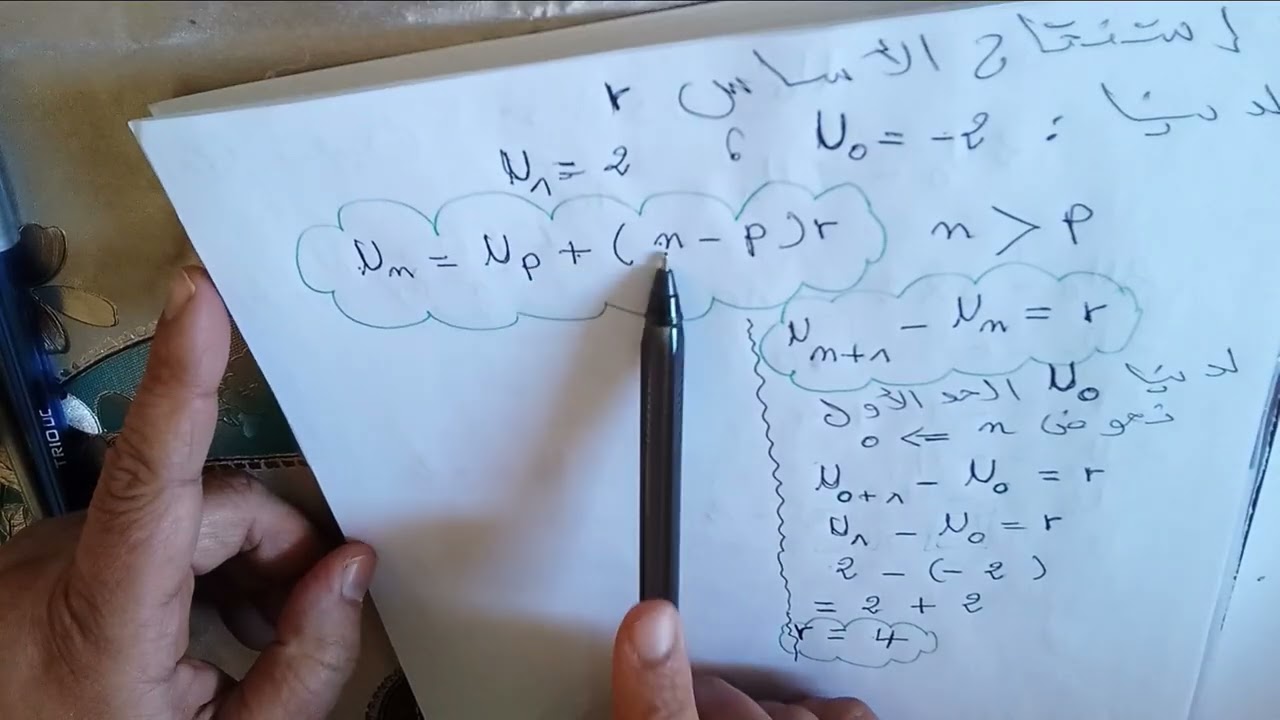 استنتاج الأساس r
لدينا : U₀ = -2 ، U₁ = 2
Uₙ = Uₚ + (n - p)r   n > p
Uₙ₊₁ - Uₙ = r
لدينا U₀ الحد الأول
نعوض n <= 0
U₀₊₁ - U₀ = r
U₁ - U₀ = r
2 - (-2)
= 2 + 2
r = 4
TRIOUC